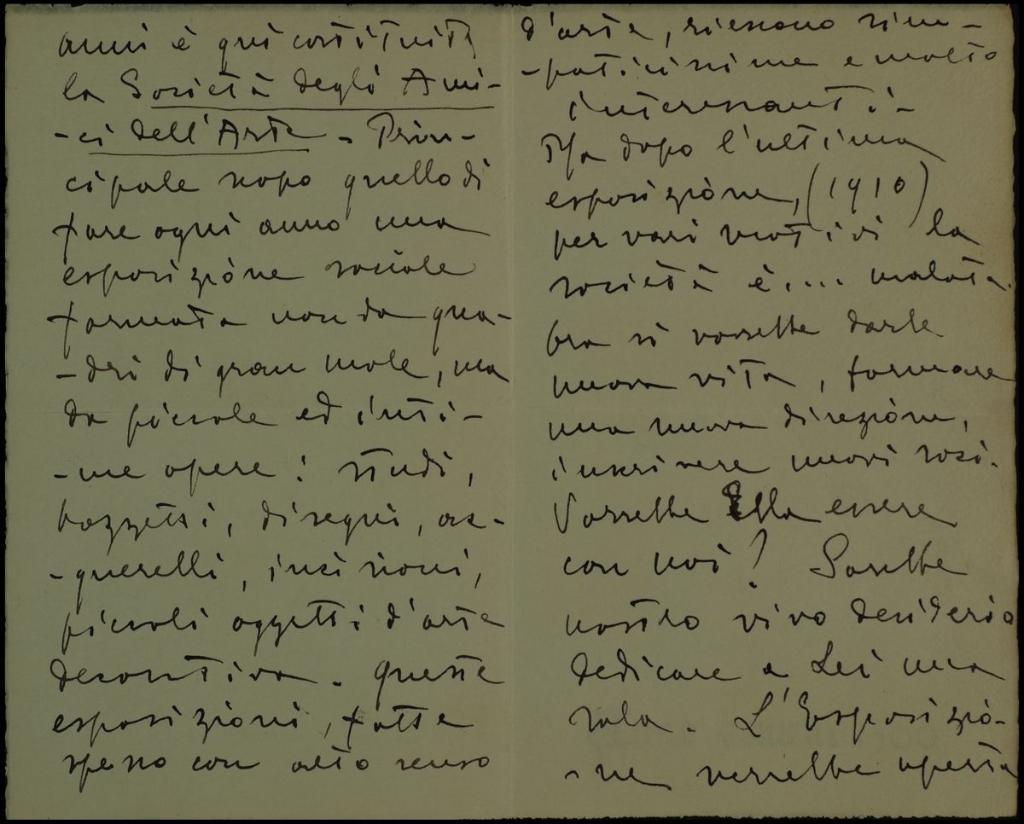 anni è qui costituita
la Società degli Ami-
-ci dell'Arte - Prin-
cipale scopo quello di
fare ogni anno una
esposiziòne sociale
formata non da qua-
-dri di gran mole, ma
da piccole ed inti-
-me opere: studi,
bozzetti, disegni, ac-
-querelli, incisioni,
piccoli oggetti d'arte
decorativa - queste
esposiziòni, fatte
spesso con alto senso
d'arte, riescono sim-
-paticissime e molto
interessanti -
Ma dopo l'ultima
esposiziòne, (1910)
per vari motivi la
società è.... malata.
Ora si vorrebbe darle
nuova vita, formare
una nuova direziòne,
inscrivere nuovi soci.
Vorrebbe Ella essere
con noi? Sarebbe
nostro vivo desiderio
dedicare a Lei una
sala. L'Esposiziò-
-ne verrebbe aperta